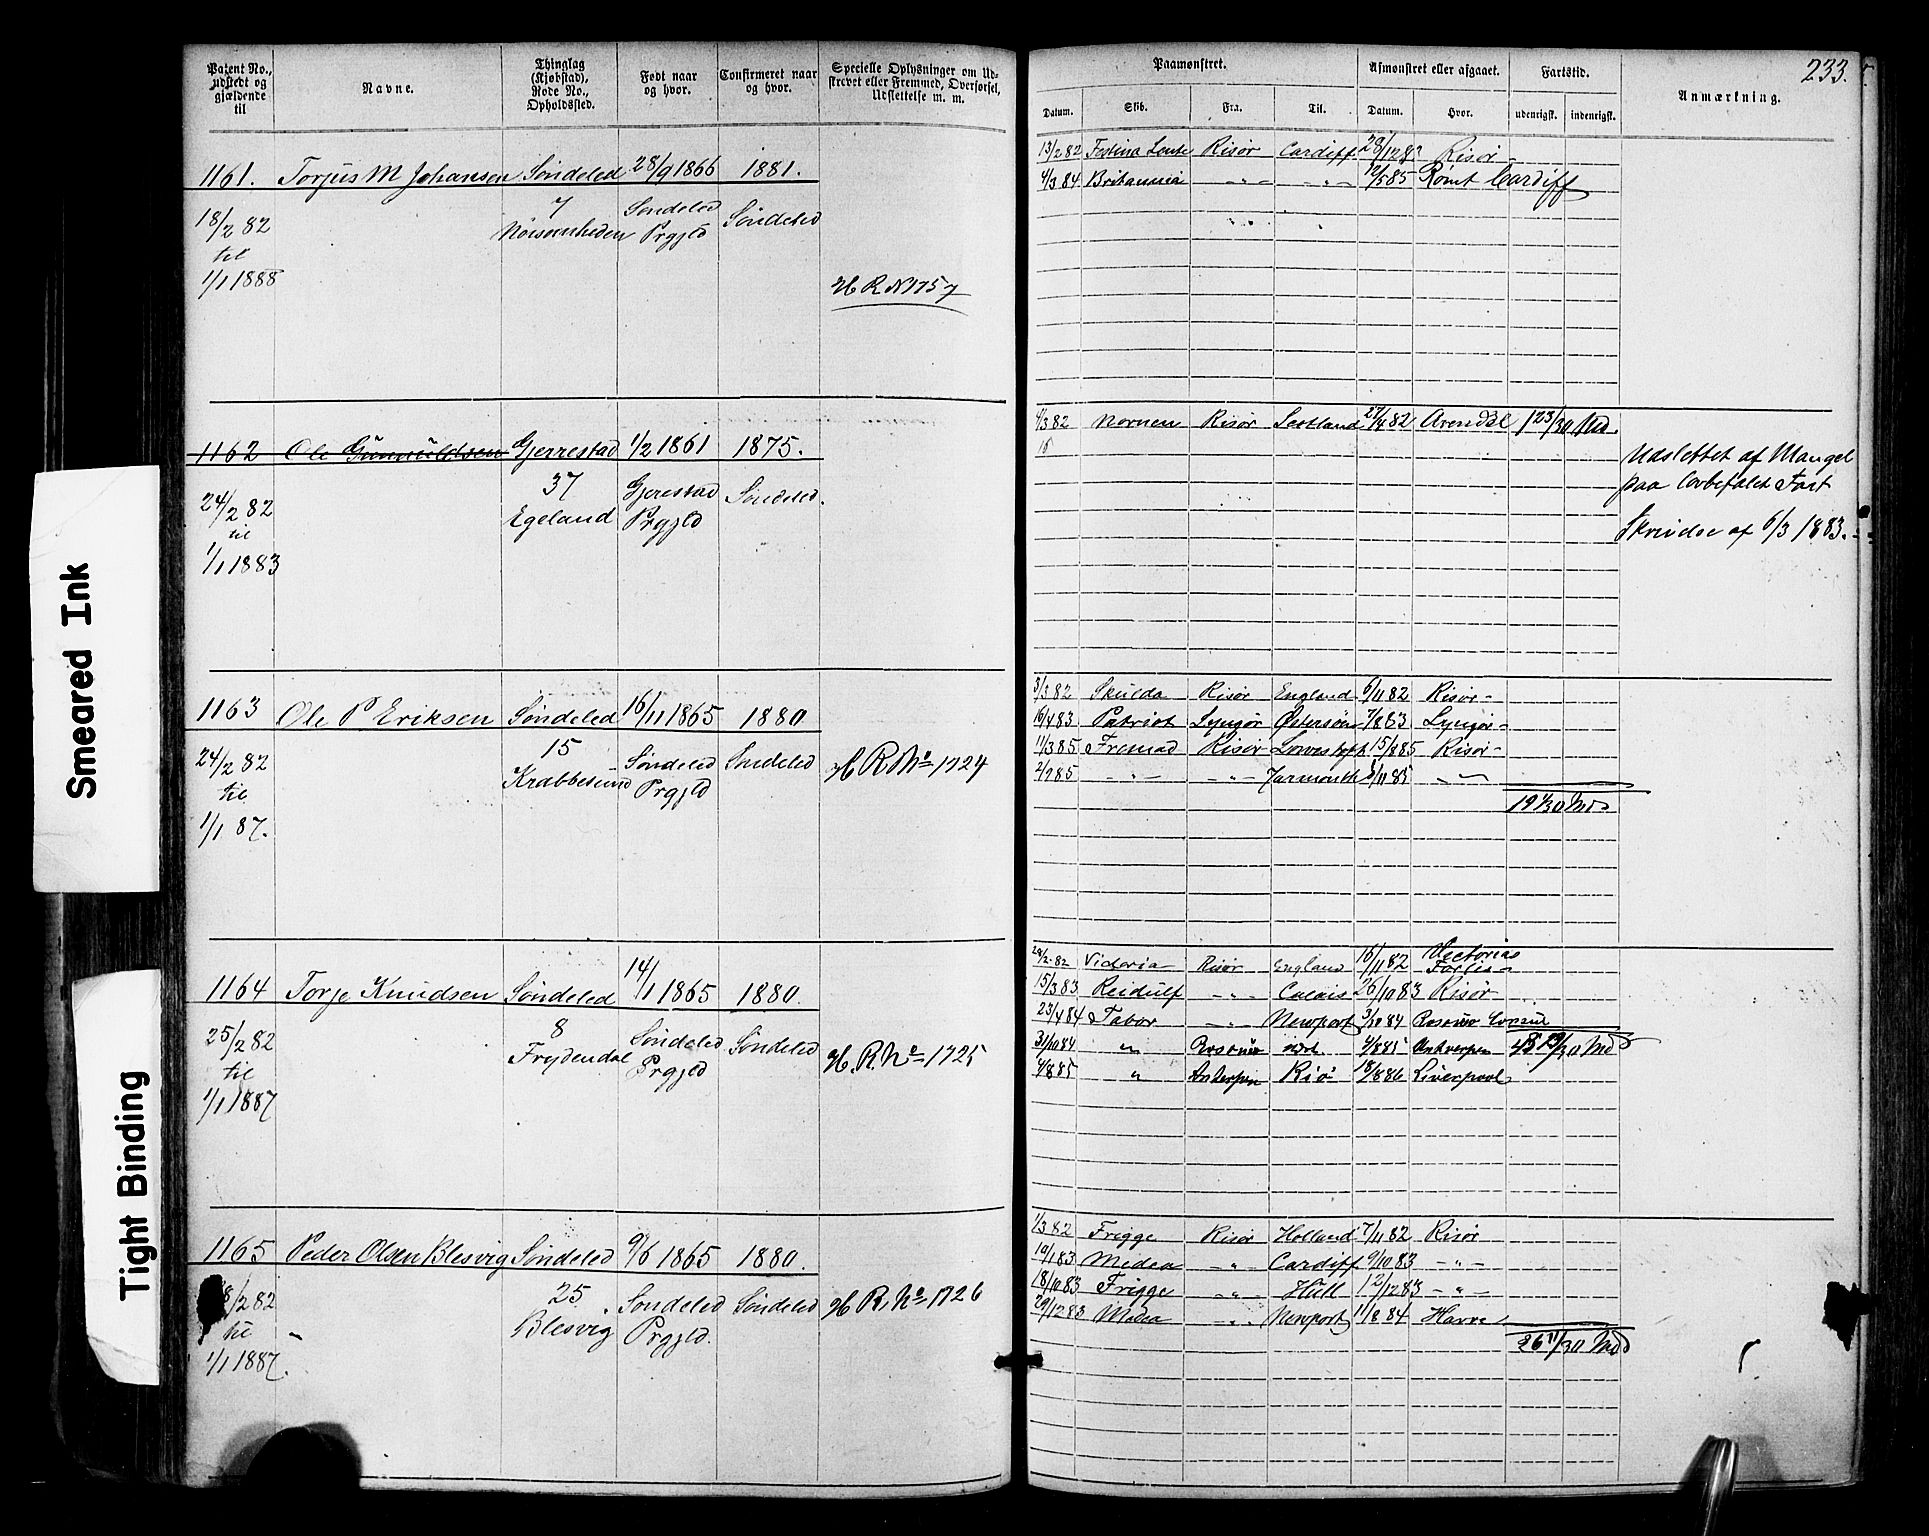 Smeared Ink
Tight Binding
Patent No., udstedt og gjældende til
Navne.
Thinglag (Kjøbstad), Rode No., Opholdssted.
Født naar og hvor.
Confirmeret naar og hvor.
Specielle Oplysninger om Udskrevet eller Fremmed, Overførsel, Udslettelse m. m.
1161. Torjus M Johansen Søndeled 28/9 1866 1881.
18/2 82 7 Søndeled Søndeled
til Prgjld
1/1 1888
H R N 1757
1162 Ole Gunnuldsen Gjerrestad 1/2 1861 1875.
24/2 82 37 Gjerestad Søndeled.
til Egeland Prgjld
1/1 1883
1163 Ole P Eriksen Søndeled 16/11 1865 1880
24/2 82 15 Søndeled Søndeled H R No 1724
til Krabbesund Prgjld
1/1 87.
1164 Torje Knudsen Søndeled 14/1 1865 1880.
25/2 82 8 Søndeled Søndeled H. R. No 1725
til Frydendal Prgjld
1/1 1887
1165 Peder Olsen Blesvig Søndeled 9/6 1865 1880.
8/2 82 25 Søndeled Søndeled H R. No 1726
til Blesvig Prgjld.
1/1 1887.
233.
Paamønstret. Afmønstret eller afgaaet. Fartstid. Anmærkning.
Datum. Skib. Fra. Til. Datum. Hvor. udenrigst. indenrigst.
13/2 82 Festina Lente Risør Cardiff Risør
4/3 84 Britannia -"- -"- 12/5 85 Rømt Cardiff
4/3 82 Nornen Risør Scotland 27/4 82 Arendal 1 23/30 Md.
Udslettet af Mangel
paa lovbefalet Fart
Skrivelse af 6/3 1883.
3/3 82 Skulda Risør England 6/11 82 Risør
16/4 83 Patriot Lyngør Østersøen 7/8 83 Lyngør
11/3 85 Fremad Risør 15/8 85 Risør
2/9 85 -"- -"- Yarmouth 5/11 85 -"-
19 1/30 Md
28/2 82 Victoria Risør England 16/11 82 Victorias Forlis
15/3 83 Reidulf -"- Calais 26/10 83 Risør
23/4 84 Tabor -"- Newport 3/10 84
31/10 84 " 4/8 85 Antverpen
4/8 85 " Antverpen Rio 18/8 86 Liverpool
1/3 82 Frigge Risør Holland 7/11 82 Risør
19/1 83 Medea -"- Cardiff 9/10 83 -"-
18/10 83 Frigge -"- Hull 12/12 83 -"-
29/12 83 Medea -"- Newport 11/8 84 Havre
26 11/30 Md